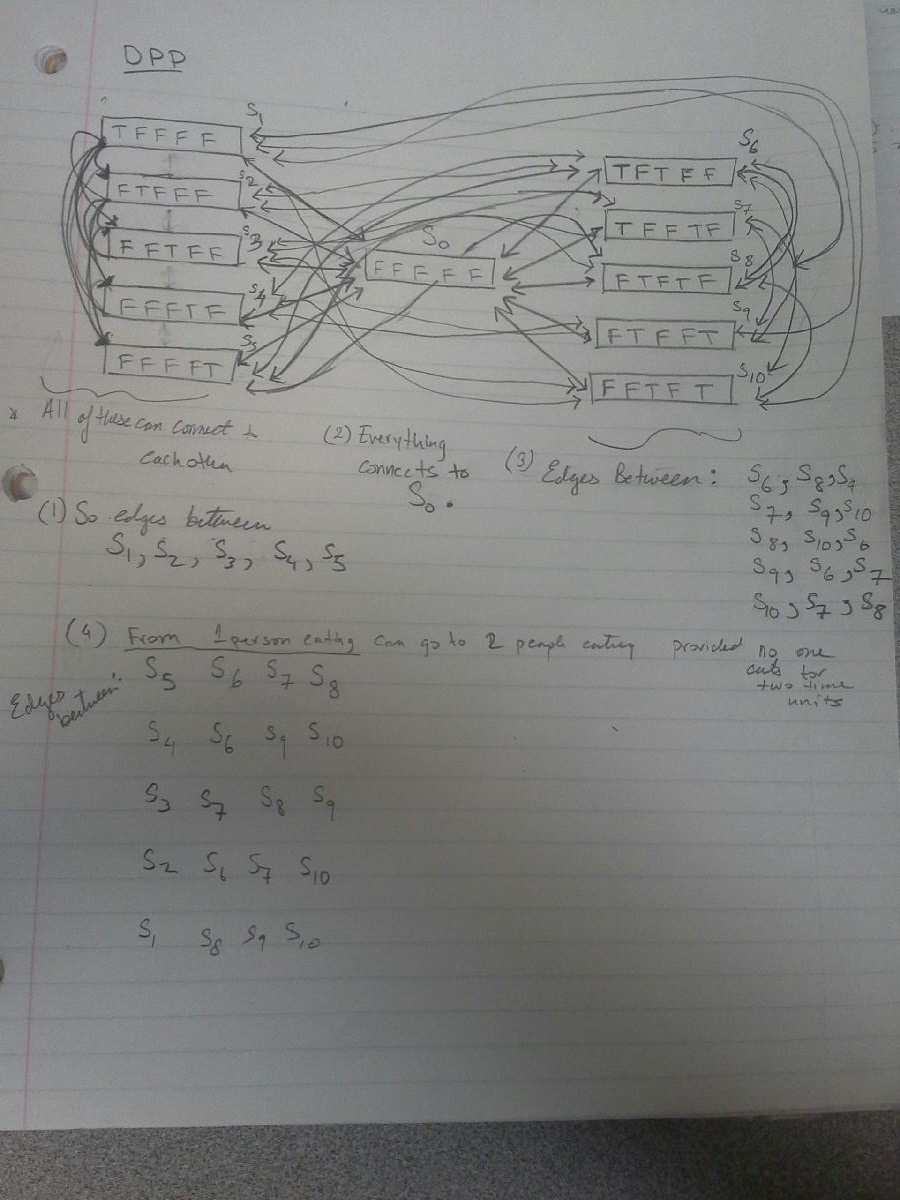 DPP
S1
TFFFF
S2
FTFFF
S3
FFTFF
S4
FFFTF
S5
FFFFT
S0
FFFFF
S6
TFTFF
S7
TFFTF
S8
FTFTF
S9
FTFFT
S10
FFTFT
* All of these can connect to
each other
(1) So edges between
S1, S2, S3, S4, S5
(2) Everything
connects to
S0.
(3) Edges Between:
S6, S8, S9
S7, S9, S10
S8, S10, S6
S9, S6, S7
S10, S7, S8
(4) From 1 person eating can go to 2 people eating provided no one
eats for
two time
units
Edges
between:
S5 S6 S7 S8
S4 S6 S9 S10
S3 S7 S8 S9
S2 S6 S7 S10
S1 S8 S9 S10